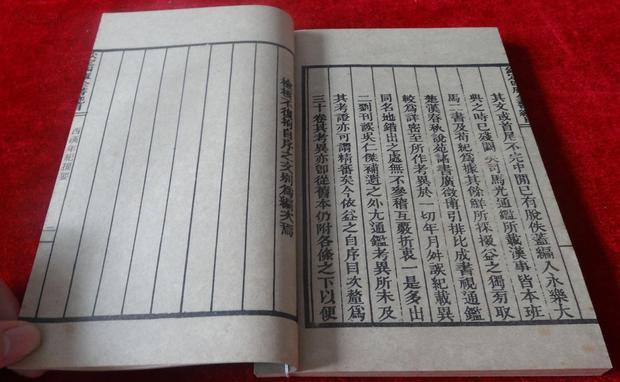 其文或首尾不完中間已有脫佚蓋編入永樂大
典之時已殘闕矣司馬光通鑑所載漢事皆本班
馬二書及荀紀為據其餘鮮所採掇益之獨旁取
楚漢春秋說苑諸書廣徵博引排比成書視通鑑
較為詳密至所作考異於一切年月舛誤紀載異
同名地錯出之處無不參稽互覈折衷一是多出
二劉刊誤吳仁傑補遺之外尤通鑑考異所未及
其考證亦可謂精審矣今依益之自序目次釐為
三十卷其考異亦卽從舊本仍附各條之下以便
檢核不復拘自序之文別為編次焉
西漢年紀提要
二